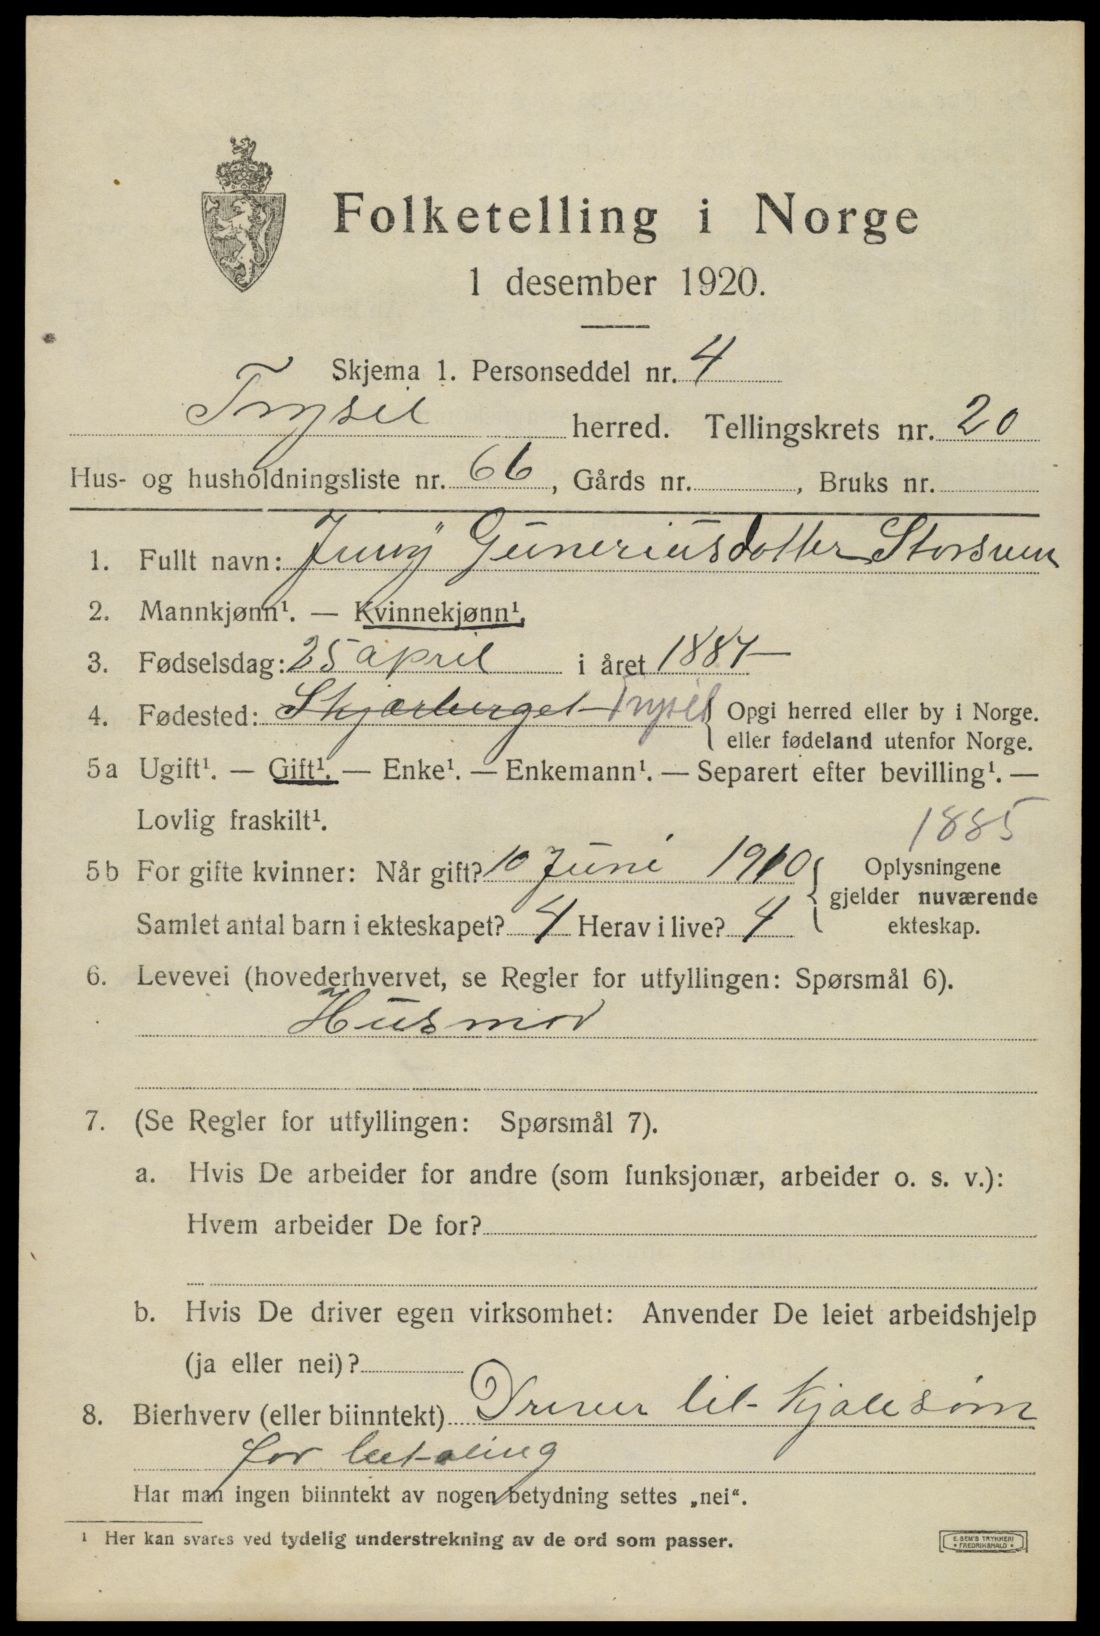 Folketelling i Norge
1 desember 1920.
Skjema 1. Personseddel nr. 4
Trysil herred. Tellingskrets nr. 20
Hus- og husholdningsliste nr. 66, Gårds nr. , Bruks nr.
1. Fullt navn: Guneriusdotter
2. Mannkjønn¹. — Kvinnekjønn¹.
3. Fødselsdag: 25 april i året 1887
4. Fødested: Skjærberget Trysil { Opgi herred eller by i Norge.
eller fødeland utenfor Norge.
5a Ugift¹. — Gift¹. — Enke¹. — Enkemann¹. — Separert efter bevilling¹. —
Lovlig fraskilt¹.
1885
5b For gifte kvinner: Når gift? 10 Juni 1910 { Oplysningene
gjelder nuværende
ekteskap.
Samlet antal barn i ekteskapet? 4 Herav i live? 4
6. Levevei (hovederhvervet, se Regler for utfyllingen: Spørsmål 6).
Husmor
7. (Se Regler for utfyllingen: Spørsmål 7).
a. Hvis De arbeider for andre (som funksjonær, arbeider o. s. v.):
Hvem arbeider De for?
b. Hvis De driver egen virksomhet: Anvender De leiet arbeidshjelp
(ja eller nei)?
8. Bierhverv (eller biinntekt) Driver lit kjolesøm
for betaling
Har man ingen biinntekt av nogen betydning settes „nei“.
¹ Her kan svares ved tydelig understrekning av de ord som passer.
E. SEM'S TRYKKERI
• FREDRIKSHALD •